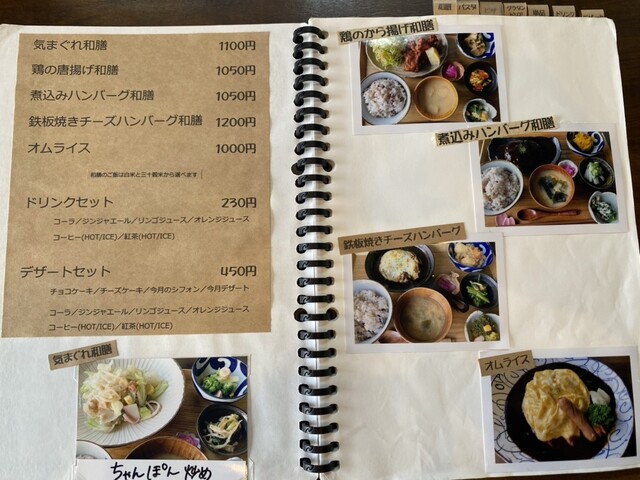 気まぐれ和膳 1100円
鶏の唐揚げ和膳 1050円
煮込みハンバーグ和膳 1050円
鉄板焼きチーズハンバーグ和膳 1200円
オムライス 1000円
和膳のご飯は白米と三十穀米から選べます
ドリンクセット 230円
コーラ／ジンジャエール／リンゴジュース／オレンジジュース
コーヒー(HOT/ICE)／紅茶(HOT/ICE)
デザートセット 450円
チョコケーキ／チーズケーキ／今月のシフォン／今月デザート
コーラ／ジンジャエール／リンゴジュース／オレンジジュース
コーヒー(HOT/ICE)／紅茶(HOT/ICE)
気まぐれ和膳
ちゃんぽん炒め
和膳 パスタ 単品 ドリンク
鶏のから揚げ和膳
煮込みハンバーグ和膳
鉄板焼きチーズハンバーグ
オムライス